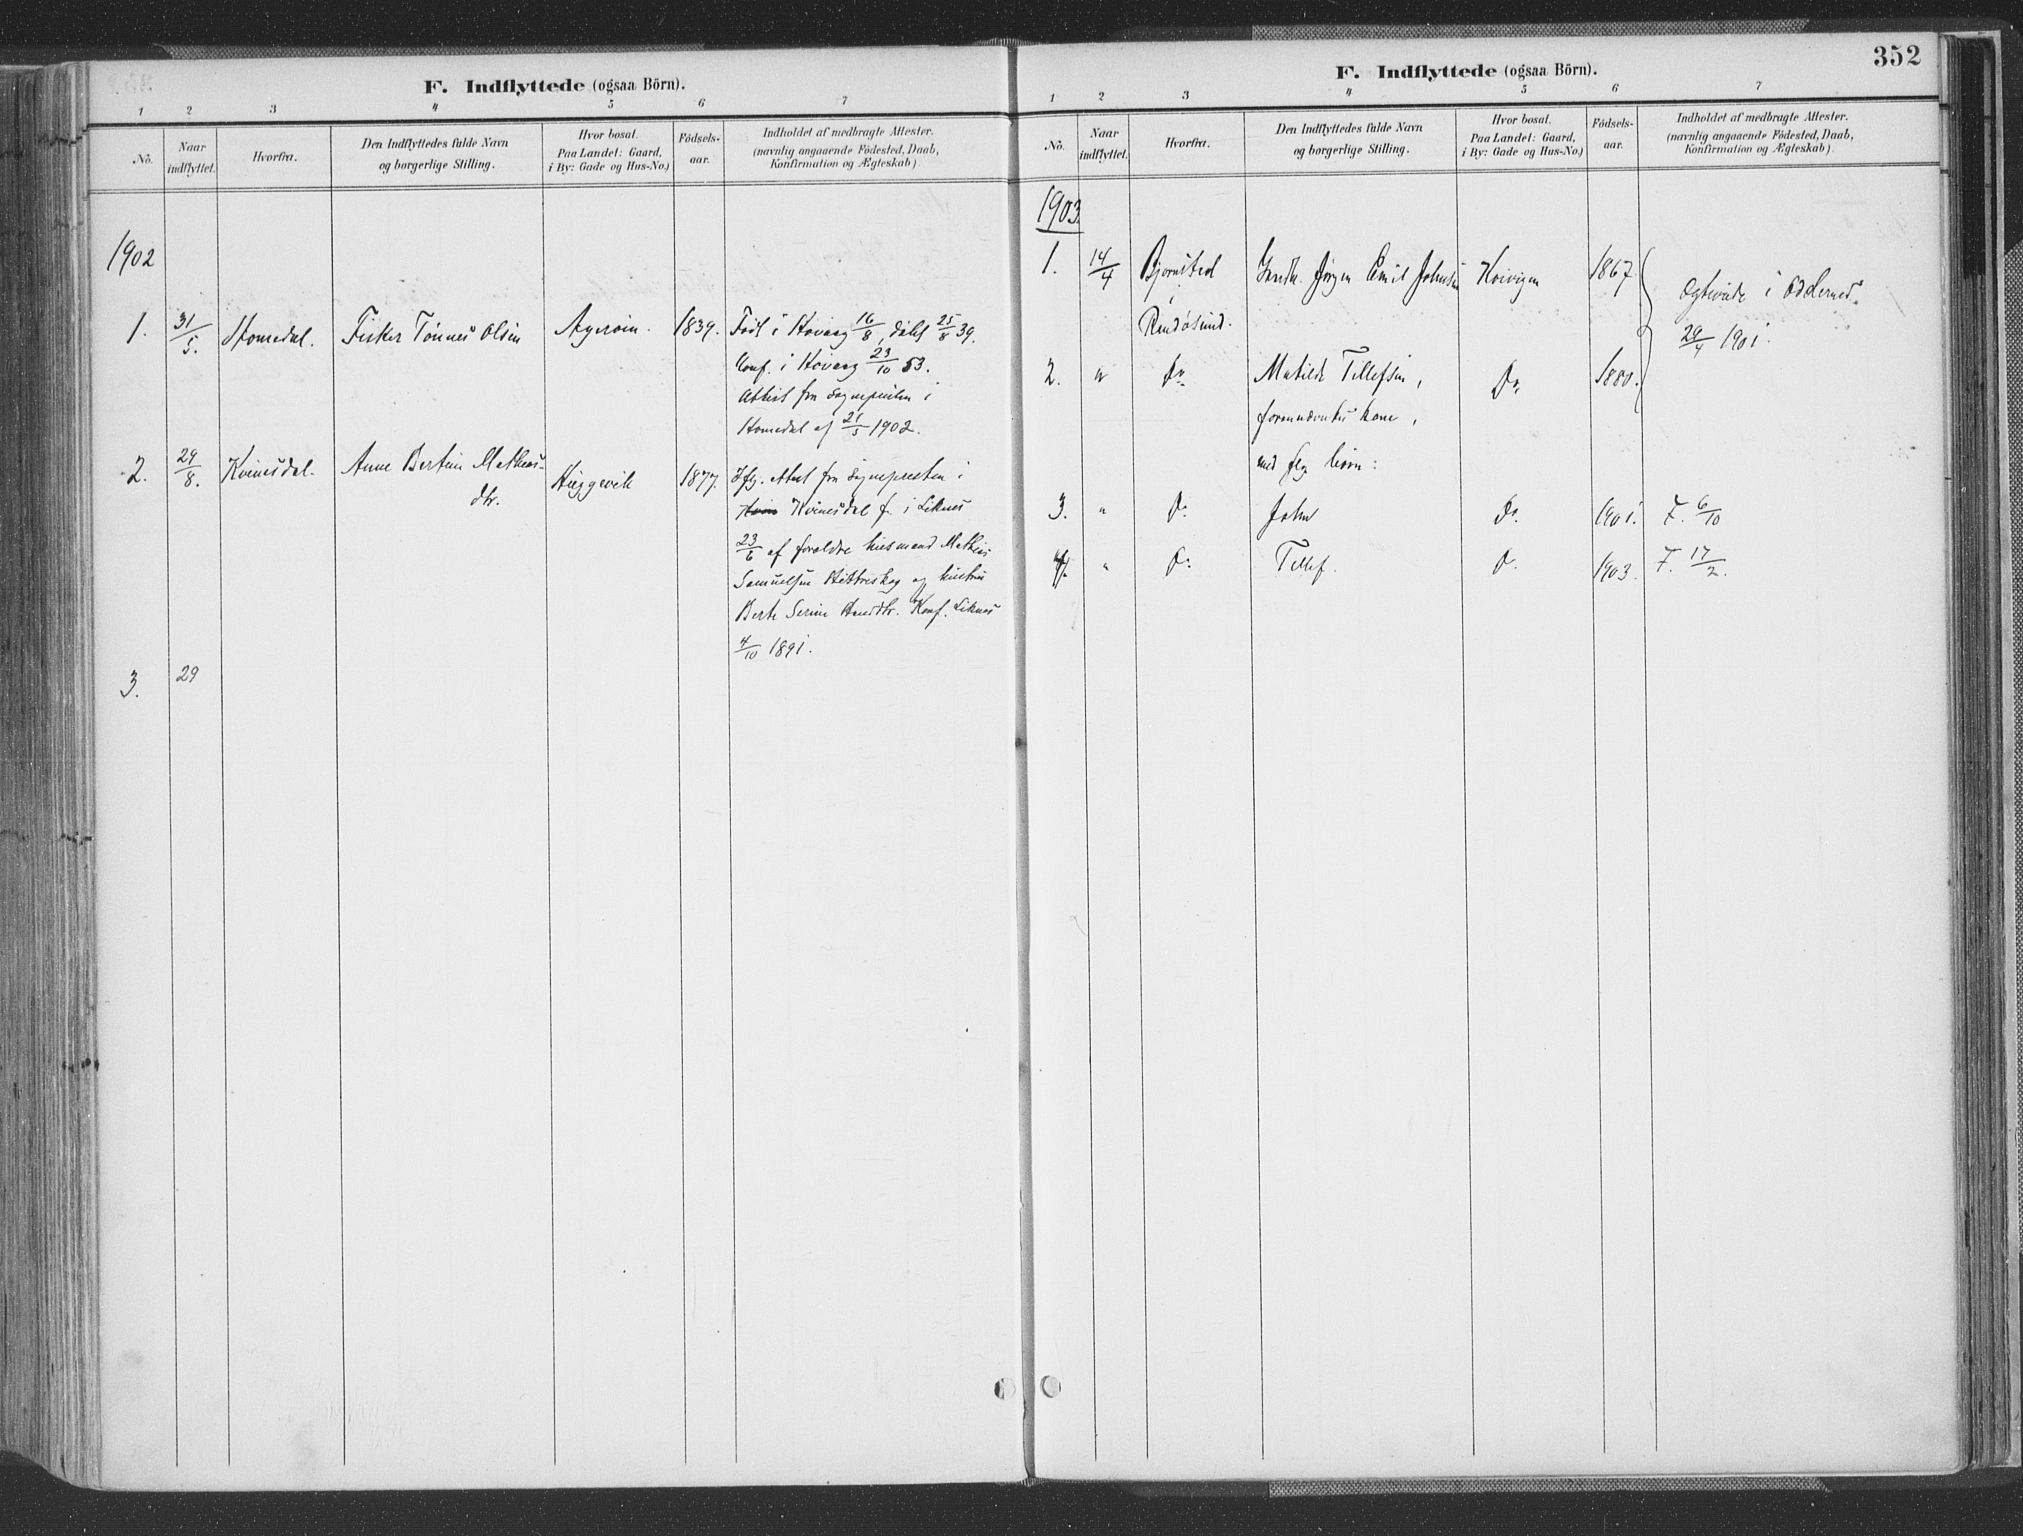 F. Indflyttede (ogsaa Börn).
1 2 3 4 5 6 7
No. Naar indflyttet. Hvorfra. Den Indflyttedes fulde Navn og borgerlige Stilling. Hvor bosat. Paa Landet: Gaard, i By: Gade og Hus-No.) Födsels-aar. Indholdet af medbragte Attester. (navnlig angaaende Födested, Daab, Konfirmation og Ægteskab)
1902
1. 31/5. Homedal. Fisker Tönnes Olsen 1839. Född i Høivaag 16/8, døbt 25/8 39.
Conf. i Høivaag 23/10 53.
Attest fra Sognepresten i
Homedal af 21/5 1902.
2. 29/8. Kvinesdal. Anne Bertine Mathias-
dtr. Hæggevik 1877. Iflg. Attest fra Sognepresten i
Kvinesdal f. i Liknes
23/6 af forældre husmand Mathias
Samuelsen og hustru
Berte Serine Konf. Liknes
4/10 1891.
3. 29
352
F. Indflyttede (ogsaa Börn).
1 2 3 4 5 6 7
No. Naar indflyttet. Hvorfra. Den Indflyttedes fulde Navn og borgerlige Stilling. Hvor bosat. Paa Landet: Gaard, i By: Gade og Hus-No.) Födsels-aar. Indholdet af medbragte Attester. (navnlig angaaende Födested, Daab, Konfirmation og Ægteskab)
1903
1. 14/4 Bjørnsted Jørgen Emil Johnsen Høivigen 1867.
Randøsund.
Ægteviede i Oddernes
29/4 1901.
2. " Do Matilde Tellefsen, Do 1880.
forannævntes kone,
med flg. børn:
3. " Do John Do 1901. F. 6/10
4. " Do Tellef. Do 1903. F. 17/2.